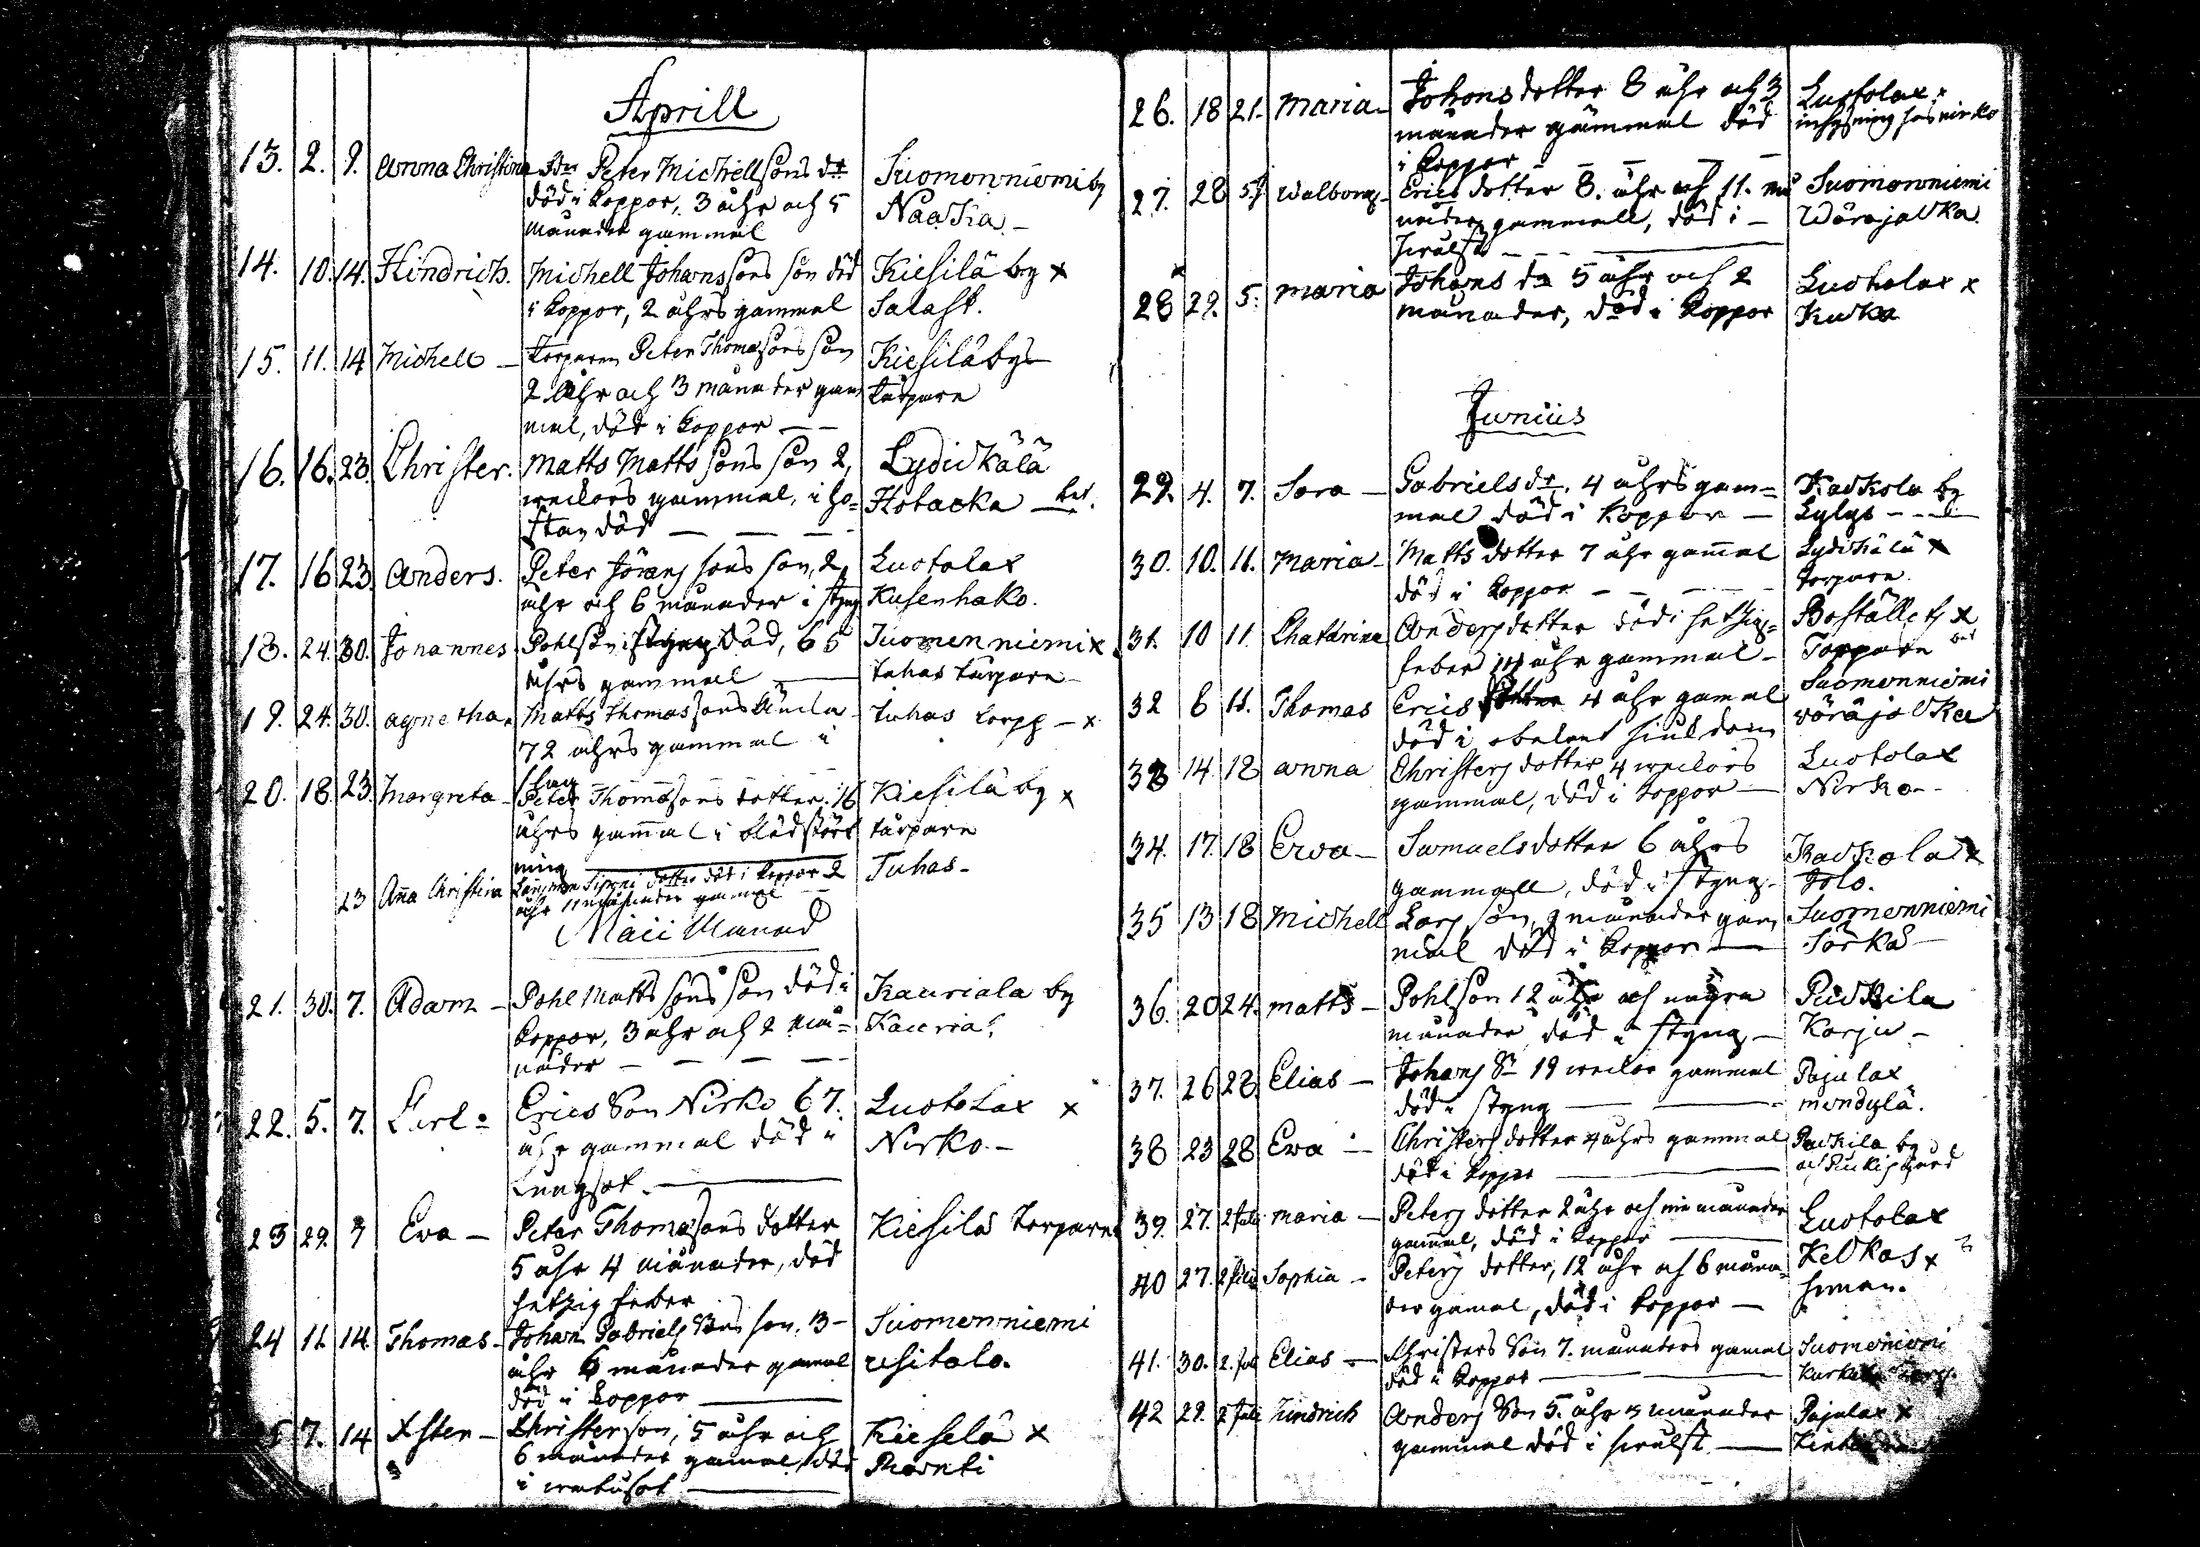 Aprill
13. 2. 9. Anna Christina Peter Michellsons dr Suomenniemi by
död i koppor, 3 åhr och 5 Naaka
månader gammal
14. 10. 14. Hindrich. Michell Johanssons son död Kiesilä by x
i koppor, 2 åhrs gammal Salast.
15. 11. 14 Michell Torparen Peter Thomassons son Kiesilä bys
2 åhr och 3 månader gam torpare
mal, död i koppor
16. 16. 23. Christer. Matts Mattssons son 2, Lydickälä
weckors gammal, i ho= Hotacka
stan död
17. 16 23. Anders. Peter Jöranssons son, 2 Luotolax
åhr och 6 månader i styng Kusenhako.
18. 24. 30. Johannes Pohlson i styng död, 65 Suomenniemi x
åhrs gammal tuhas torpare
19. 24. 30. Agnetha Matts Thomassons Änka tuhas torpp x
72 åhrs gammal i
slag
20. 18. 23. Margreta Peter Thomassons dotter 16 Kiesilä by x
åhrs gammal i blodstört torpare
ning
23 Anna Christina dotter död i koppor 2 Tuhas
åhr 11 månader gammal
Maii Månad
21. 30. 7. Adam Pohl Mattssons son död i Kauriala by
koppor, 3 åhr och 2 må= Kauria
nader
22. 5. 7. Carl Erics Son Nirko 67. Luotolax x
åhr gammal död i Nirko
Lungsot
23 29. 7 Eva Peter Thomassons dotter Kiesilä torpare
5 åhr 4 månader, död
hetzig feber
24 11. 14. Thomas Johan Gabriels Sons son. 3 Suomenniemi
åhr 6 månader gamal usitalo.
död i koppor
5 7. 14 Christerson, 5 åhr och Kieselä x
6 månader gamal, död
i
26. 18 21. Maria Johans dotter 8 åhr och 3 Luotolax x
månader gammal död inhysning hos nirko
i koppor
27. 28 5 Walborg Erics dotter 8. åhr och 11. må Suomenniemi
nader gammall, död i Wäräjalka
swulst
28 29. 5. Maria Johans dr 5 åhr och 2 Luotolax x
månader, död i koppor Kuka
Junius
29. 4. 7. Sara Gabriels dr. 4 åhrs gam= Kackola by
mal död i koppor Lylys
30. 10. 11. Maria Matts dotter 7 åhr gammal Lydikälä x
död i koppor torpare
31. 10 11. Chatarina Anders dotter död i hetzig= Boställets x
feber åhr gammal Torpare
32 6 11. Thomas Erics 4 åhr gamal Suomenniemi
död i obekant siukdom wäräjalka
33 14 18 Anna Christers dotter 4 weckors Luotolax
gammal, död i koppor Nirko
34. 17. 18 Ewa Samuels dotter 6 åhrs Kackola x
gammall, död i styng
35 13 18 Michell Lars son, 9 månader gam Suomenniemi
mal död i koppor Sorka
36. 20 24. Matts Pohlson 12 åhr och några Puckila
månader död i styng Korju
37. 26 28. Elias Johans Sn 19 weckor gammal Pajulax
död i styng mondylä.
38 23 28 Ewa Christers dotter 4 åhrs gammal Packila by
död i koppor
39. 27. 2 Julii Maria Peters dotter 2 åhr och nie månader Luotolax
gammal, död i koppor
40 27. 2 Julii Sophia Peters dotter, 12 åhr och 6 måna= Kelkas x
der gamal, död i koppor
41. 30. 2. Jul Elias Christers Son 7. månaders gamal Suomeniemi
död i koppor
42 29. 2 Juli Hindrich Anders Son 5. åhr månader Pajulax x
gammal död i swulst